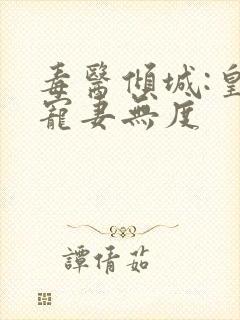 毒醫傾城:皇
寵妻無度
譚倩茹